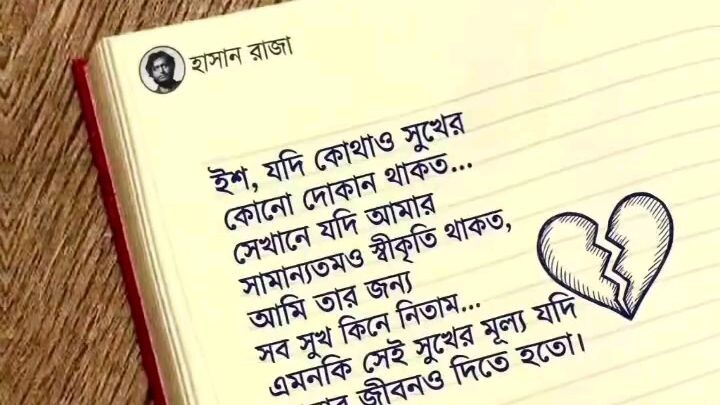 হাসান রাজা
ইশ, যদি কোথাও সুখের
কোনো দোকান থাকত...
সেখানে যদি আমার
সামান্যতমও স্বীকৃতি থাকত,
আমি তার জন্য
সব সুখ কিনে নিতাম...
এমনকি সেই সুখের মূল্য যদি
জীবনও দিতে হতো।